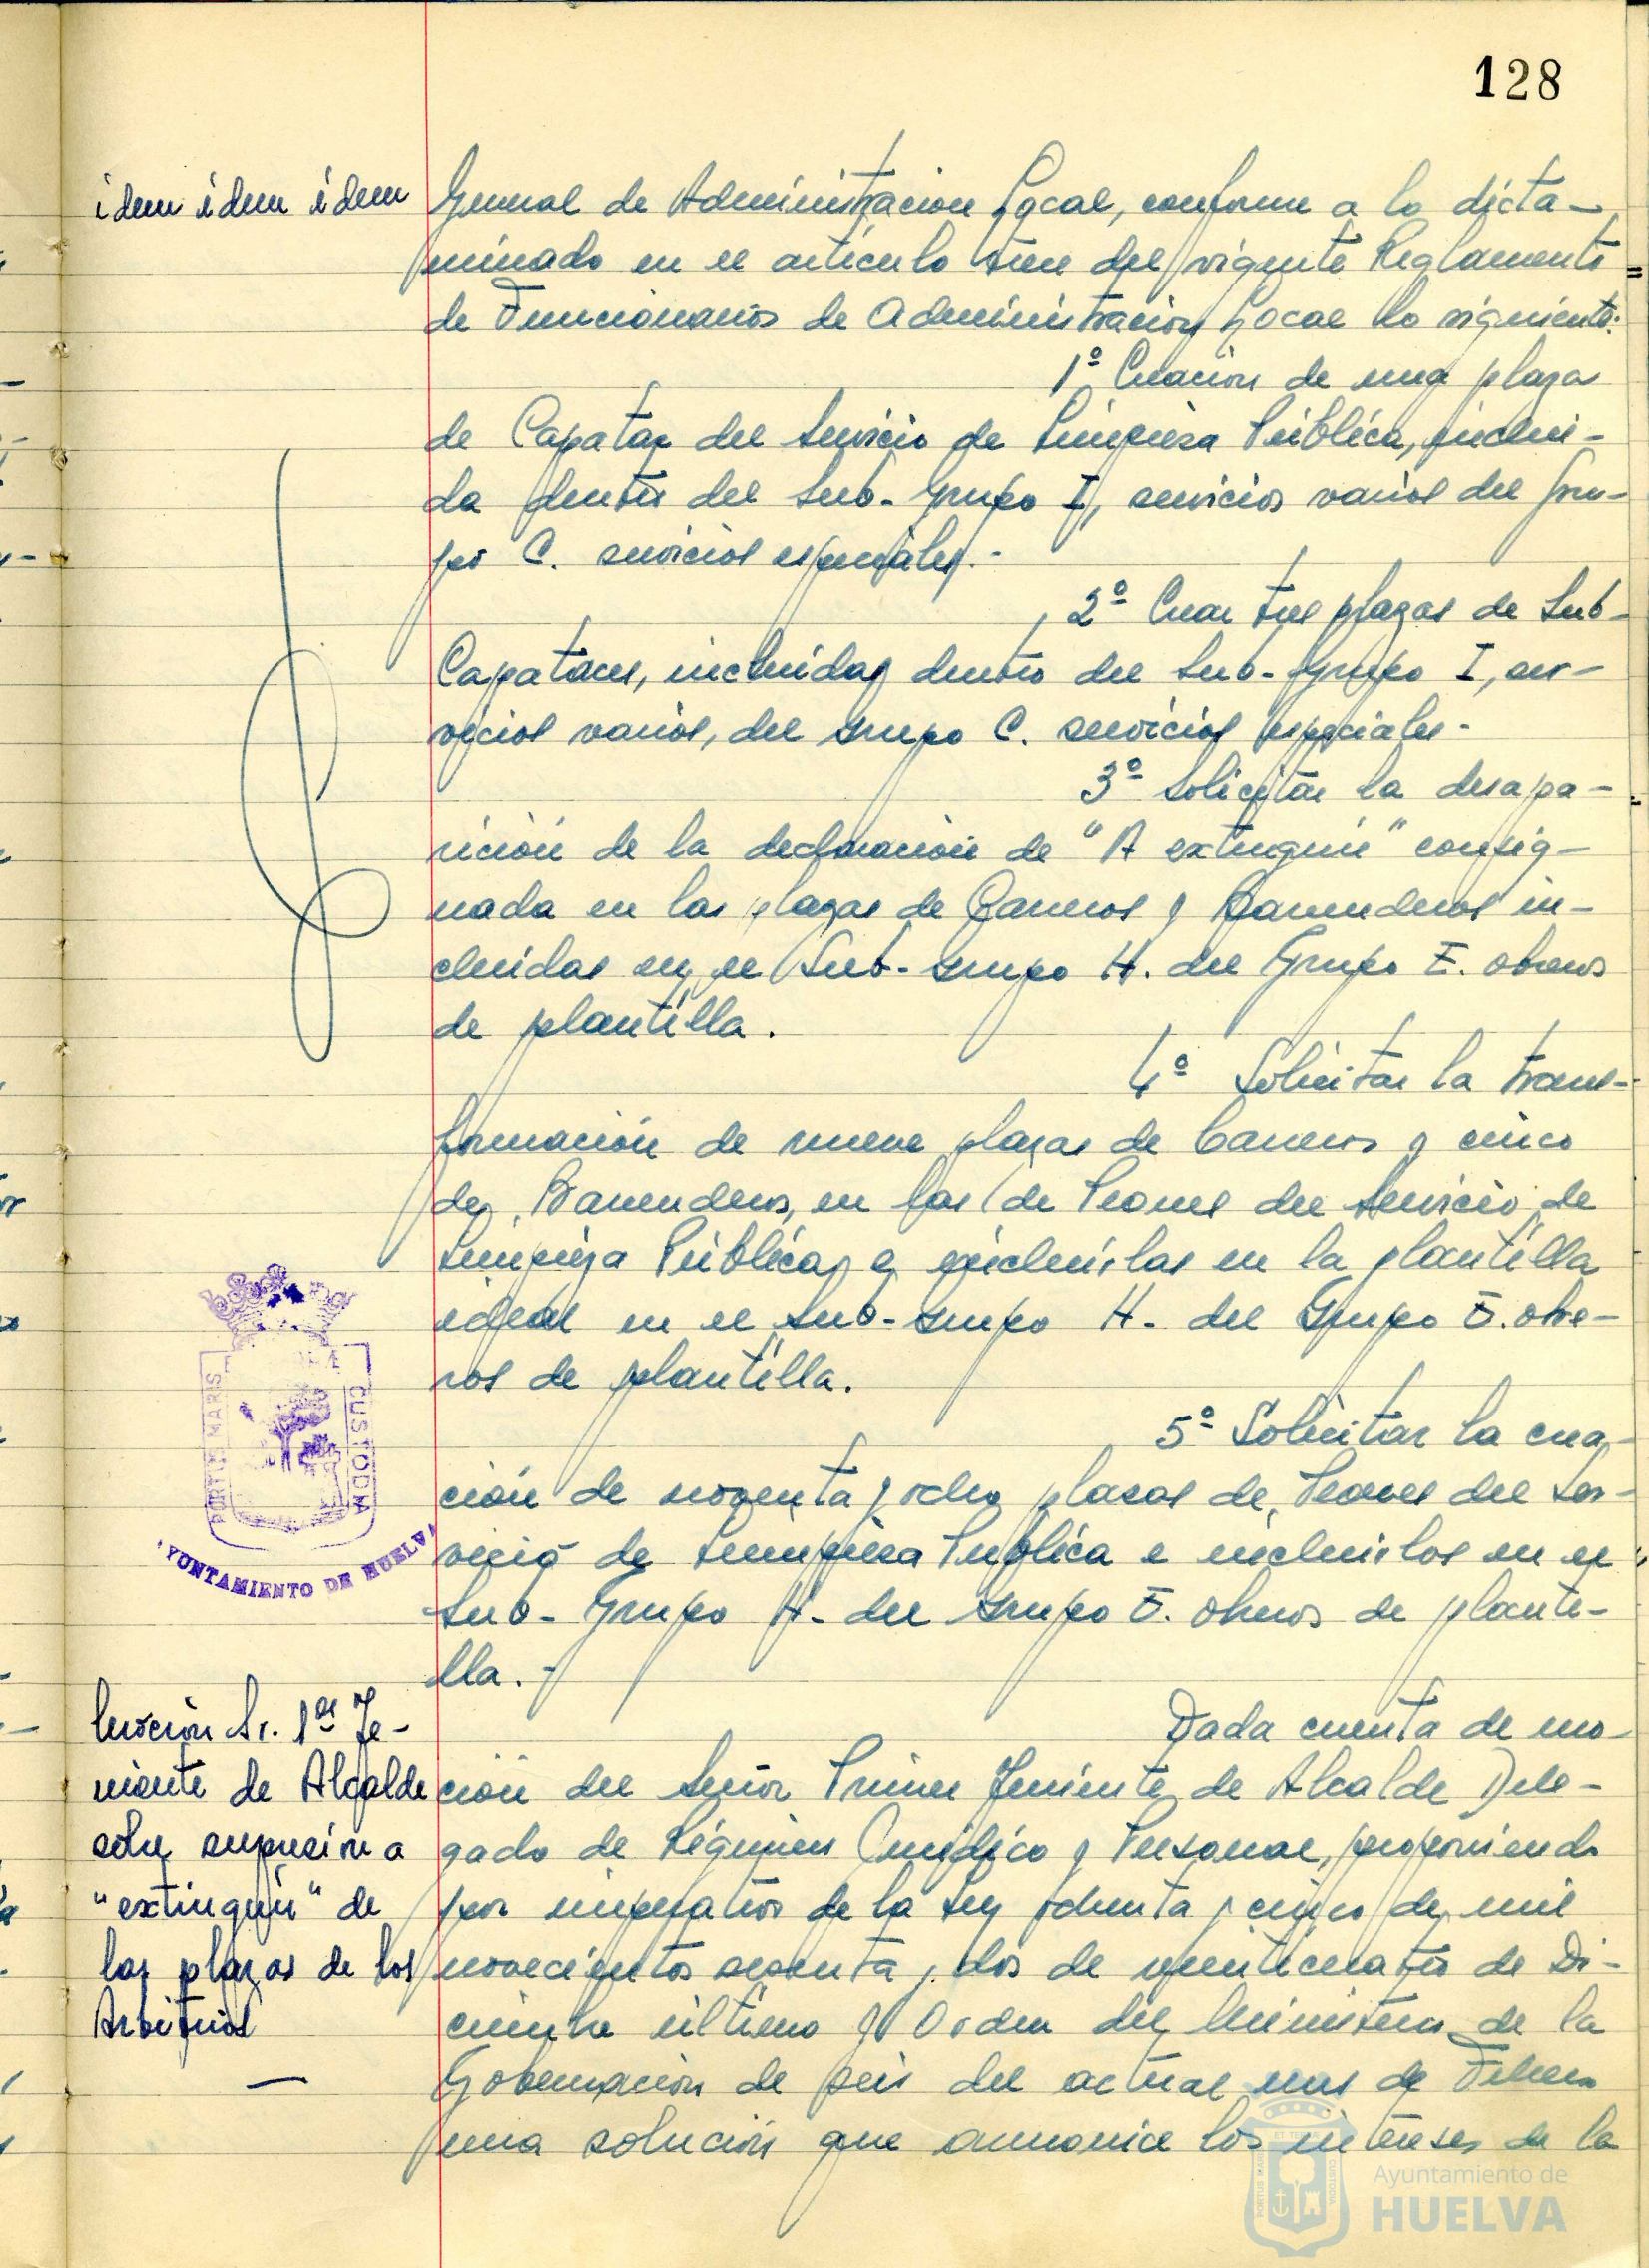 128
idem idem idem
General de Administración Local, conforme a lo dicta-
minado en el artículo trece del vigente Reglamento
de Funcionarios de Administración Local lo siguiente:
1º Creación de una plaza
de Capataz del Servicio de Limpieza Pública, inclui-
da dentro del Sub-Grupo I, servicios varios del Gru-
po C. servicios especiales.-
2º Crear tres plazas de Sub-
Capataces, incluidas dentro del Sub-Grupo I, ser-
vicios varios, del Grupo C. servicios especiales-
3º Solicitar la desapa-
rición de la declaración de "A extinguir" consig-
nada en las plazas de Carreros y Barrenderos in-
cluidas en el Sub-Grupo H. del Grupo E. obreros
de plantilla.
4º Solicitar la trans-
formación de nueve plazas de Carreros y cinco
de Barrenderos, en las de Peones del Servicio de
Limpieza Pública, e incluirlas en la plantilla
ideal en el Sub-Grupo H- del Grupo E. obre-
ros de plantilla.
5º Solicitar la crea-
ción de noventa y ocho plazas de Peones del Ser-
vicio de Limpieza Pública e incluirlos en el
Sub-Grupo H- del Grupo E. obreros de planti-
lla.-
PORTUS MARIS
CUSTODIA
YUNTAMIENTO DE HUELVA
Moción Sr. 1er Te-
niente de Alcalde
sobre supresión a
"extinguir" de
las plazas de los
Arbitrios
Dada cuenta de mo-
ción del Señor Primer Teniente de Alcalde Dele-
gado de Régimen Jurídico y Personal, proponiendo
por imperativo de la Ley ochenta y cinco de mil
novecientos sesenta y dos de veinticuatro de Di-
ciembre último y Orden del Ministerio de la
Gobernación de seis del actual mes de Febrero
una solución que armonice los intereses de la
Ayuntamiento de
HUELVA